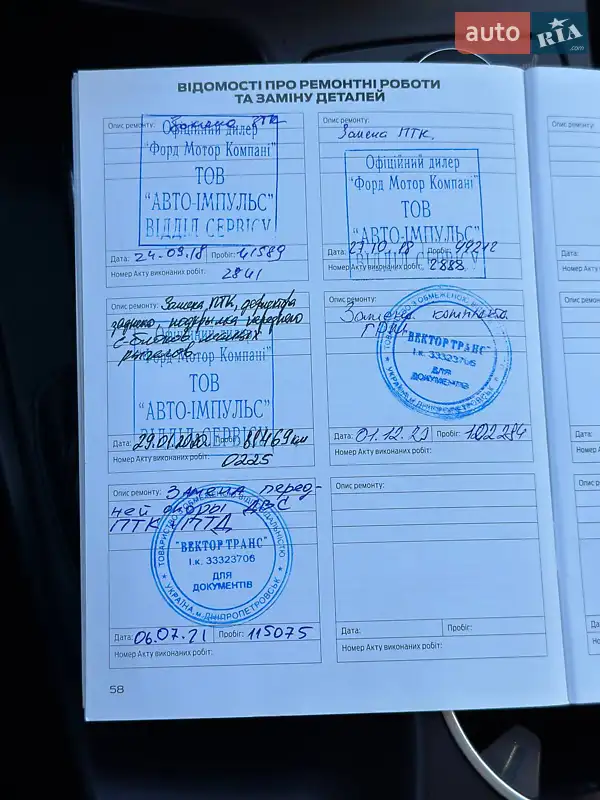 auto RIA .com
ВІДОМОСТІ ПРО РЕМОНТНІ РОБОТИ
ТА ЗАМІНУ ДЕТАЛЕЙ
Опис ремонту: Замена ПТК
Офіційний дилер
"Форд Мотор Компані"
ТОВ
"АВТО-ІМПУЛЬС"
ВІДДІЛ СЕРВІСУ
Дата: 24.09.18 Пробіг: 41589
Номер Акту виконаних робіт: 2841
Опис ремонту:
Замена ПТК.
Офіційний дилер
"Форд Мотор Компані"
ТОВ
"АВТО-ІМПУЛЬС"
ВІДДІЛ СЕРВІСУ
Дата: 10.18 Пробіг:
Номер Акту виконаних робіт: 2888
Опис ремонту: Замена ПТК,
заднего, переднего
рычагов
"Форд Мотор Компані"
ТОВ
"АВТО-ІМПУЛЬС"
ВІДДІЛ СЕРВІСУ
Дата: 29.01.2020 Пробіг: 88469 км
Номер Акту виконаних робіт: 0225
Опис ремонту:
Замена комплекта
ГРМ
ТОВАРИСТВО З ОБМЕЖЕНОЮ
"ВЕКТОР ТРАНС"
І.к. 33323706
ДЛЯ
ДОКУМЕНТІВ
УКРАЇНА, м.ДНІПРОПЕТРОВСЬК
Дата: 01.12.20 Пробіг: 102284
Номер Акту виконаних робіт:
Опис ремонту: Замена перед-
ней опоры ДВС
ПТК ПТД
ТОВАРИСТВО З ОБМЕЖЕНОЮ ВІДПОВІДАЛЬНІСТЮ
"ВЕКТОР ТРАНС"
І.к. 33323706
ДЛЯ
ДОКУМЕНТІВ
УКРАЇНА, м.ДНІПРОПЕТРОВСЬК
Дата: 06.07.21 Пробіг: 115075
Номер Акту виконаних робіт:
Опис ремонту:
Дата: Пробіг:
Номер Акту виконаних робіт:
58
Опис ремонту:
Дата:
Номер Ак
Опис ремонту
Дата:
Номер Ак